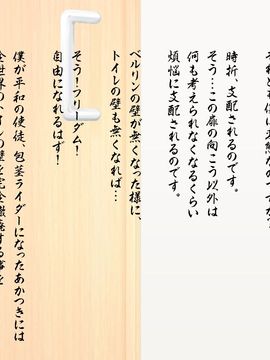 時折、支配されるのです。
そう…この扉の向こう以外は
何も考えられなくなるくらい
煩悩に支配されるのです。
ベルリンの壁が無くなった様に、
トイレの壁も無くなれば…
そう！フリーダム！
自由になれるはず！
僕が平和の使徒、包茎ライダーになったあかつきには